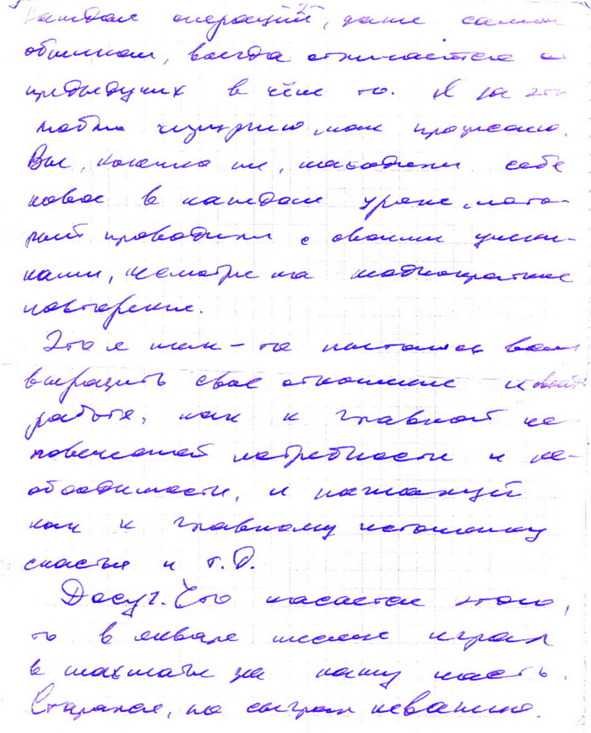 Каждая операция, даже самая
обычная, всегда отличается от
предыдущих в чём то. Я за это
люблю хирургию, как профессию.
Вы, конечно же, находили себе
новое в каждом уроке, кото-
рый проводили с своими учени-
ками, несмотря на многократное
повторение.
Это я как-то пытаюсь вам
выразить свое отношение к своей
работе, как к главной че-
ловеческой потребности и не-
обходимости, и пожалуй
как к главному источнику
счастья и т.д.
Досуг. Что касается этого,
то в январе месяце играл
в шахматы за нашу часть.
Старался, но сыграл неважно.